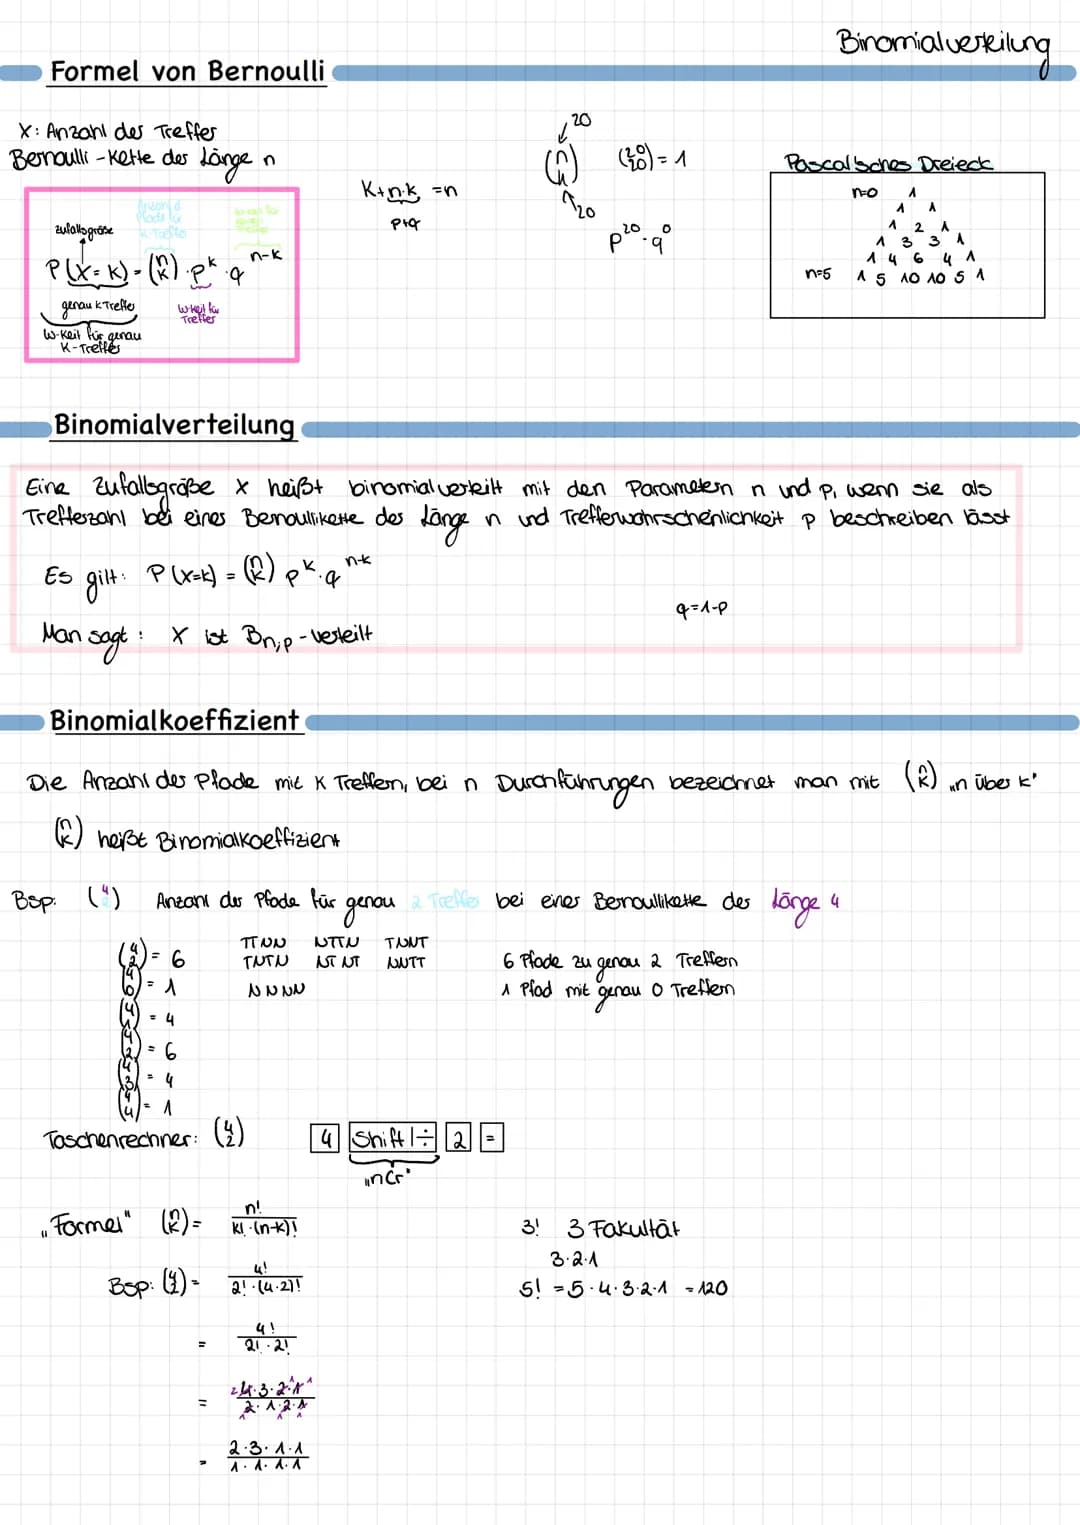 Binomialverteilung
Formel von Bernoulli
X: Anzahl der Treffer
Bernoulli-Kette der Länge n
Anzahl d Pfade für K-Treffer
Zufallsgröße
P(X=k) = (n k) · p^k · q^n-k
genau k Treffer
W-keit für Treffer
W-Keit für genau
K-Treffer
K+n-k = n
p+q
20
(n k)
20
(20 20) = 1
p^20 · q^0
Pascal'sches Dreieck
n=0 1
1 1
1 2 1
1 3 3 1
1 4 6 4 1
n=5 1 5 10 10 5 1
Binomialverteilung
Eine Zufallsgröße X heißt binomialverteilt mit den Parametern n und p, wenn sie als
Trefferzahl bei einer Bernoullikette der Länge n und Trefferwahrscheinlichkeit p beschreiben lässt
Es gilt: P(X=k) = (n k) p^k · q^n-k
q=1-p
Man sagt: X ist Bn;p-verteilt
Binomialkoeffizient
Die Anzahl der Pfade mit K Treffern, bei n Durchführungen bezeichnet man mit (n k) „n über k"
(n k) heißt Binomialkoeffizient
Bsp: (4 2) Anzahl der Pfade für genau 2 Treffer bei einer Bernoullikette der Länge 4
(4 2) = 6 TTNN NTTN TNNT
TNTN NTNT NNTT
6 Pfade zu genau 2 Treffern
(4 0) = 1 NNNN
1 Pfad mit genau 0 Treffern
(4 1) = 4
(4 2) = 6
(4 3) = 4
(4 4) = 1
Taschenrechner: (4 2) 4 Shift ÷ 2 =
„nCr"
„Formel" (n k) = n! / k! · (n-k)!
3! 3 Fakultät
3·2·1
Bsp: (4 2) = 4! / 2! · (4-2)!
5! = 5·4·3·2·1 = 120
= 4! / 2! · 2!
= 4·3·2·1 / 2·1·2·1
= 2·3·1·1 / 1·1·1·1